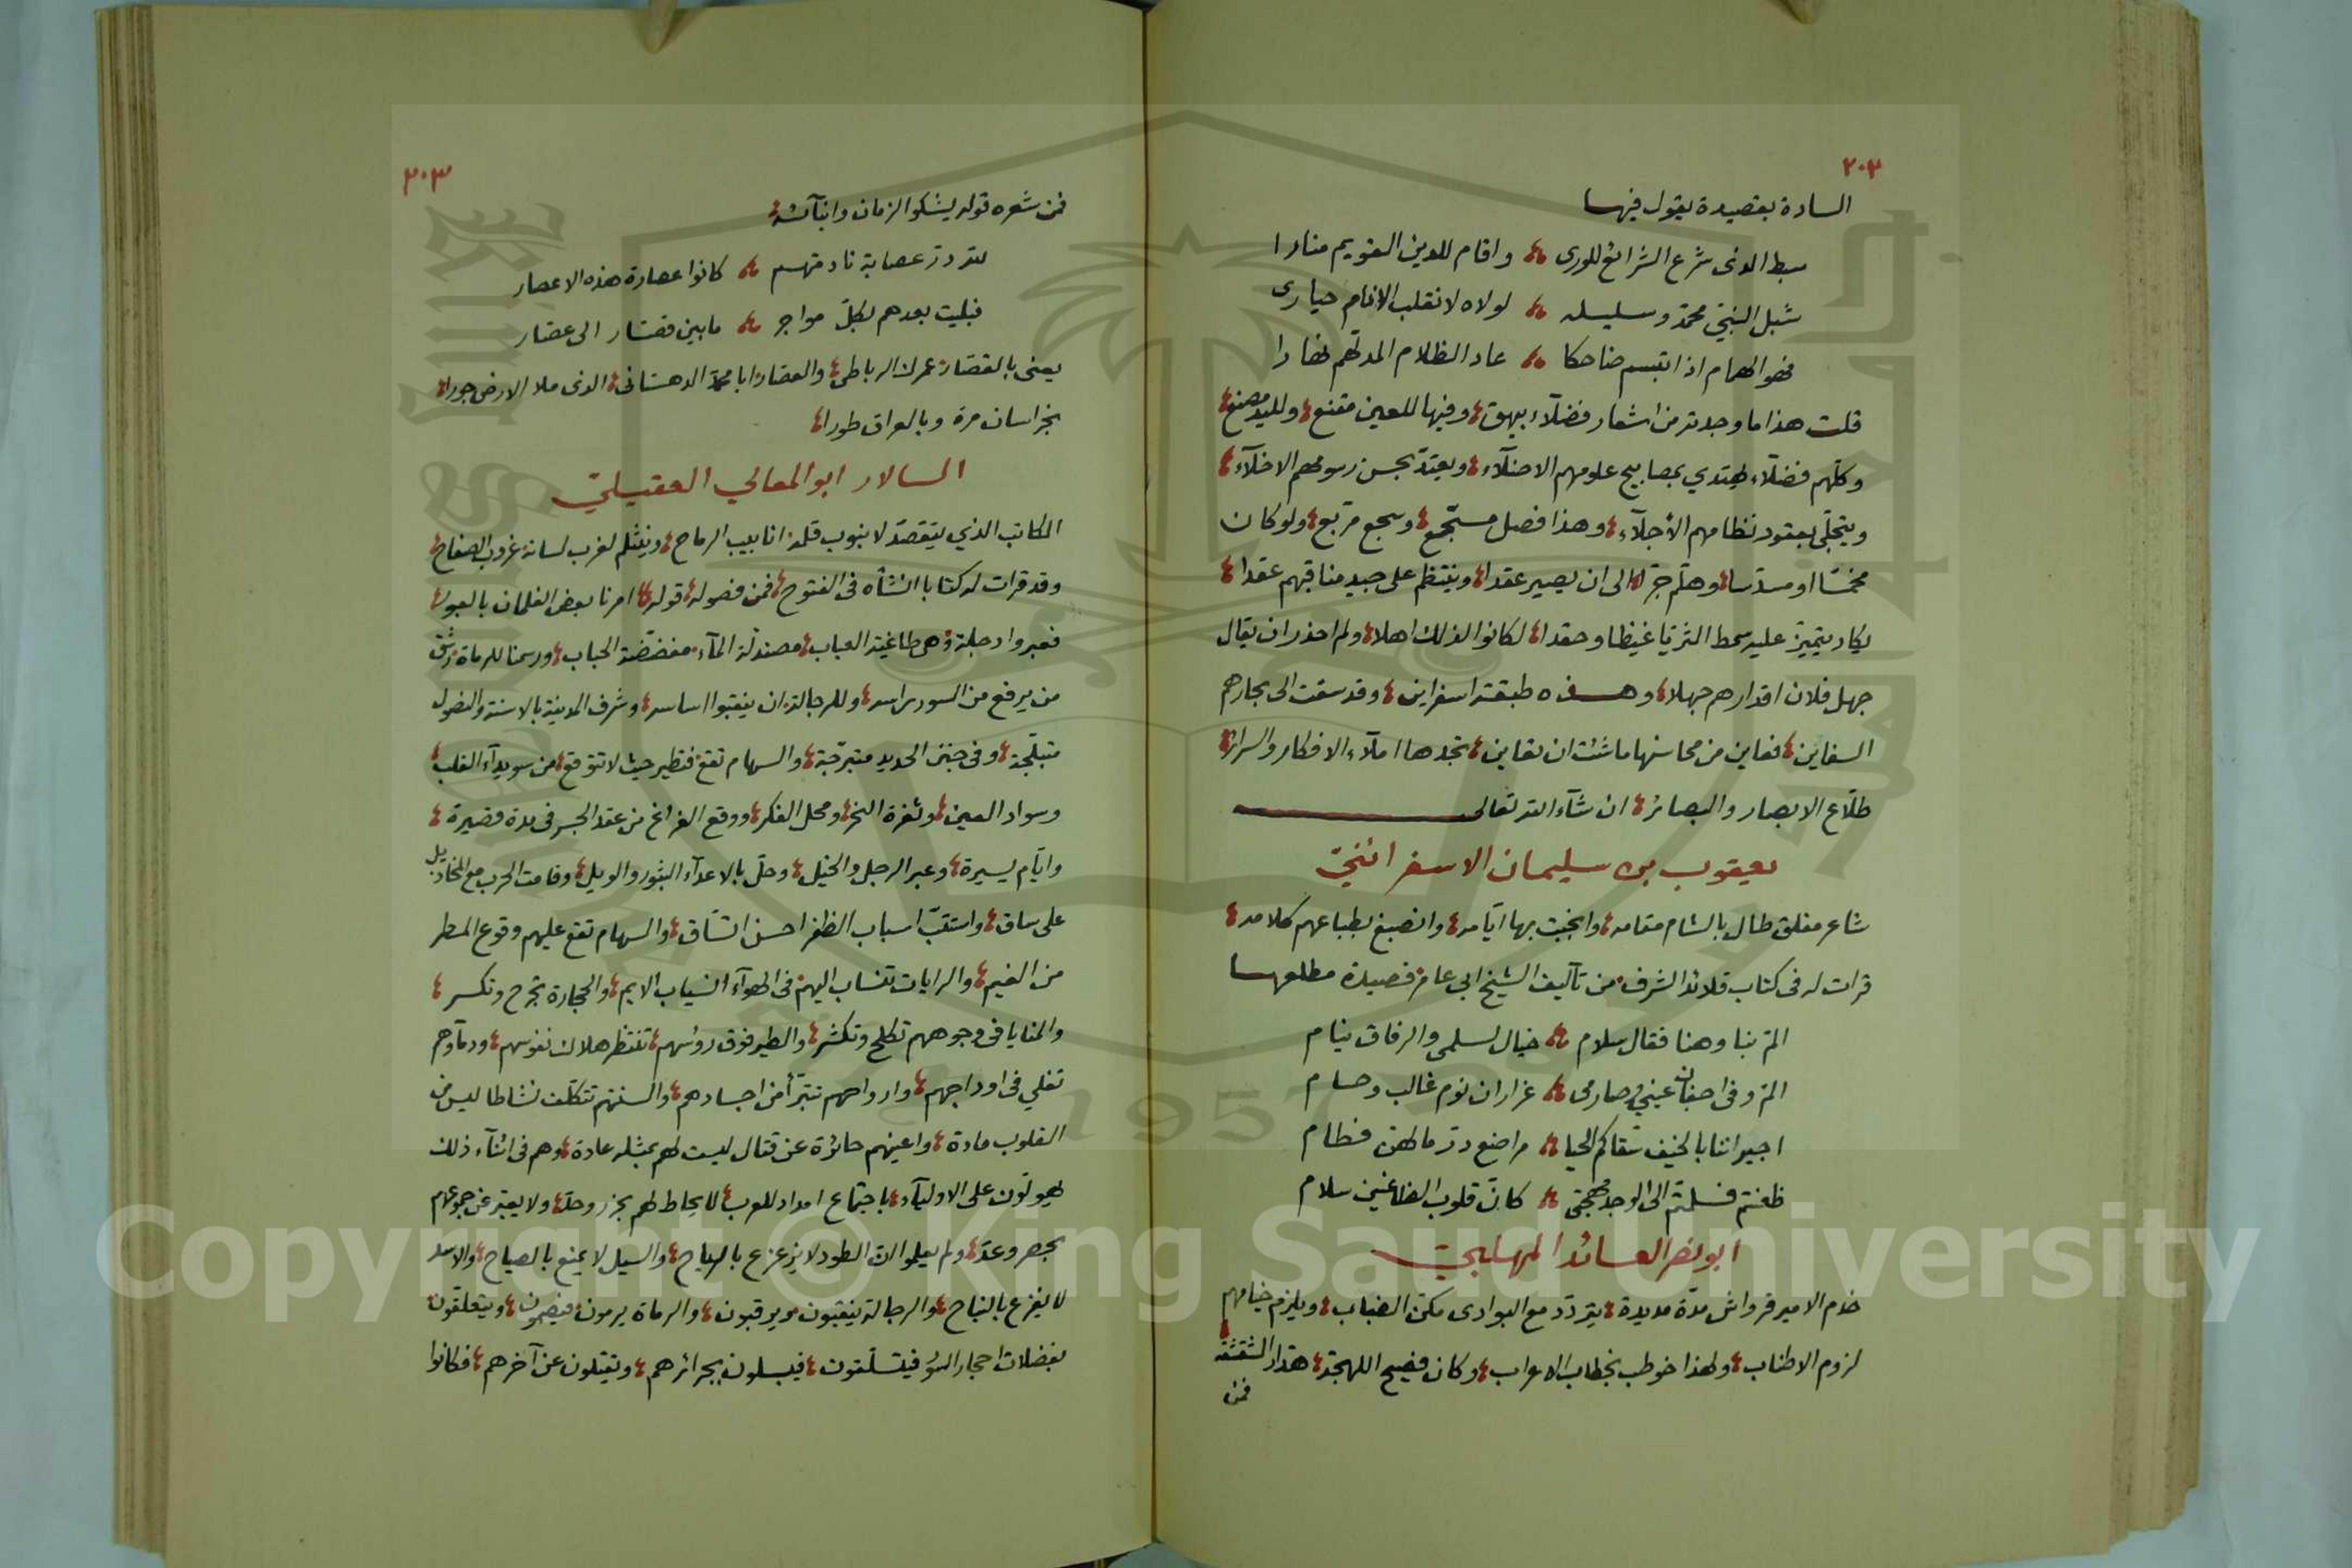 ٢٠٢
السادة بقصيدة يقول فيها
سبط الذى شرع الشرائع للورى واقام للدين القويم منارا
شبل النبىّ محمّد وسليله لولاه لانقلب الانام حيارى
فهو الهمام اذا ابتسم ضاحكا عاد الظلام المدلهم نهارا
قلت هذا ما وجدته من اشعار فضلآء بيهق وفيها للعين مقنع ولليد مصنع
وكلّهم فضلآء يهتدي بمصابيح علومهم الاضلآء ويعتدّ بحسن رسومهم الاخلآء
ويتجلّى بعقود نظامهم الأجلآء وهذا فصل مسجّع وسجع مربّع ولو كان
مخمّسا او مسدّسا وهلّم جرّا الى ان يصير عقدا وينتظم على جيد مناقبهم عقدا
يكاد يتميّز عليه سمط الثريّا غيظا وحقدا لكانوا لذلك اهلا ولم احذر ان يقال
جهل فلان اقدارهم جهلا وهذه طبقة اسفراين وقد سقت الى بحارهم
السفاين فعاين من محاسنها ما شئت ان تعاين تجدها املآء الافكار والسرائر
طلّاع الابصار والبصائر ان شآء الله تعالى
يعقوب بن سليمان الاسفرائنيّ
شاعر مفلق طال بالشام مقامه وانجبت بها ايّامه وانصبغ بطباعهم كلامه
قرات له فى كتاب قلائد الشرف من تآليف الشيخ ابى عامر قصيدة مطلعها
المّ بنا وهنا فقال سلام خيال لسلمى والرفاق نيام
المّ وفى اجفان عيني وصارمى غراران نوم غالب وحسام
اجيراننا بالخيف سقاكم الحيا مراضع درّ ما لهنّ فطام
ظعنتم فسلمتم الى الوجد مهجتى كانّ قلوب الظاعنين سلام
ابو نصر العائد المهلبجيّ
خدم الامير قرواش مدّة مديدة يتردّد مع البوادى مكنّ الضباب ويلزم خيامهم
لزوم الاطناب ولهذا خوطب بخطاب الاعراب وكان فصيح اللهجة هدّار الشقشقة
فمن
٢٠٣
فمن شعره قوله يشكوا الزمان وابنآئه
لله درّ عصابة نادمتهم كانوا عصارة هذه الاعصار
فبليت بعدهم بكلّ مواجر ما بين قصّار الى عصّار
يعنى بالقصّار عمرك الرباطى والعصّار ابا محمّد الدهستانى الذى ملا الارض جورا
بخراسان مرة وبالعراق طورا
السالار ابو المعالي العقيليّ
الكاتب الذي يتقصّد لانبوب قلمه انابيب الرماح وينثلم لغرب لسانه غروب الصفاح
وقد قرات له كتابا انشأه فى الفتوح فمن فصوله قوله امرنا بعض الغلمان بالعبور
فعبروا دجلة وهى طاغية العباب مصندلة المآء مفضّضة الحباب ورسمنا للرماة رشق
من يرفع من السور راسه وللرجالة ان ينقبوا اساسه وشرف المدينة بالاسنّة والنصول
متبلّجة وفى جنن الحديد متبرّجة والسهام تقع فتطير حيث لا تتوقع من سويدآء القلب
وسواد العين وثغرة النحر ومحل الفكر ووقع الفراغ من عقد الجسر فى مدة قصيرة
وايّام يسيرة وعبر الرجل والخيل وحلّ بالاعدآء الثبور والويل وقامت الحرب مع المخاذيل
على ساق واستتبّ اسباب الظفر احسن اتساق والسهام تقع عليهم وقوع المطر
من الغيم والرايات تنساب اليهم فى الهوآء انسياب الايم والحجارة تجرح وتكسر
والمنايا فى وجوههم تكلح وتكشر والطير فوق رؤسهم تنتظر هلاك نفوسهم ودمآؤهم
تغلي فى اوداجهم وارواحهم تتبرّأ من اجسادهم والسنتهم تتكلّف نشاطا ليس من
القلوب مادة واعينهم حائرة عن قتال ليست لهم بمثله عادة وهم فى اثنآء ذلك
يهولون على الاوليآء باجتماع امداد للعرب لا يحاط لهم بحزر وحدّ ولا يعبّر عن جموعهم
بحصر وعدّ ولم يعلموا انّ الطود لا يزعزع بالرياح والسيل لا يمنع بالصياح والاسد
لا يفزع بالنباح والرجالة ينقبون ويرقبون والرماة يرمون فيصمون ويتعلقون
بفضلات احجار السور فيتسلّقون فيبسلون بجرائرهم ويقتلون عن آخرهم فكانوا
Copyright © King Saud University
1957